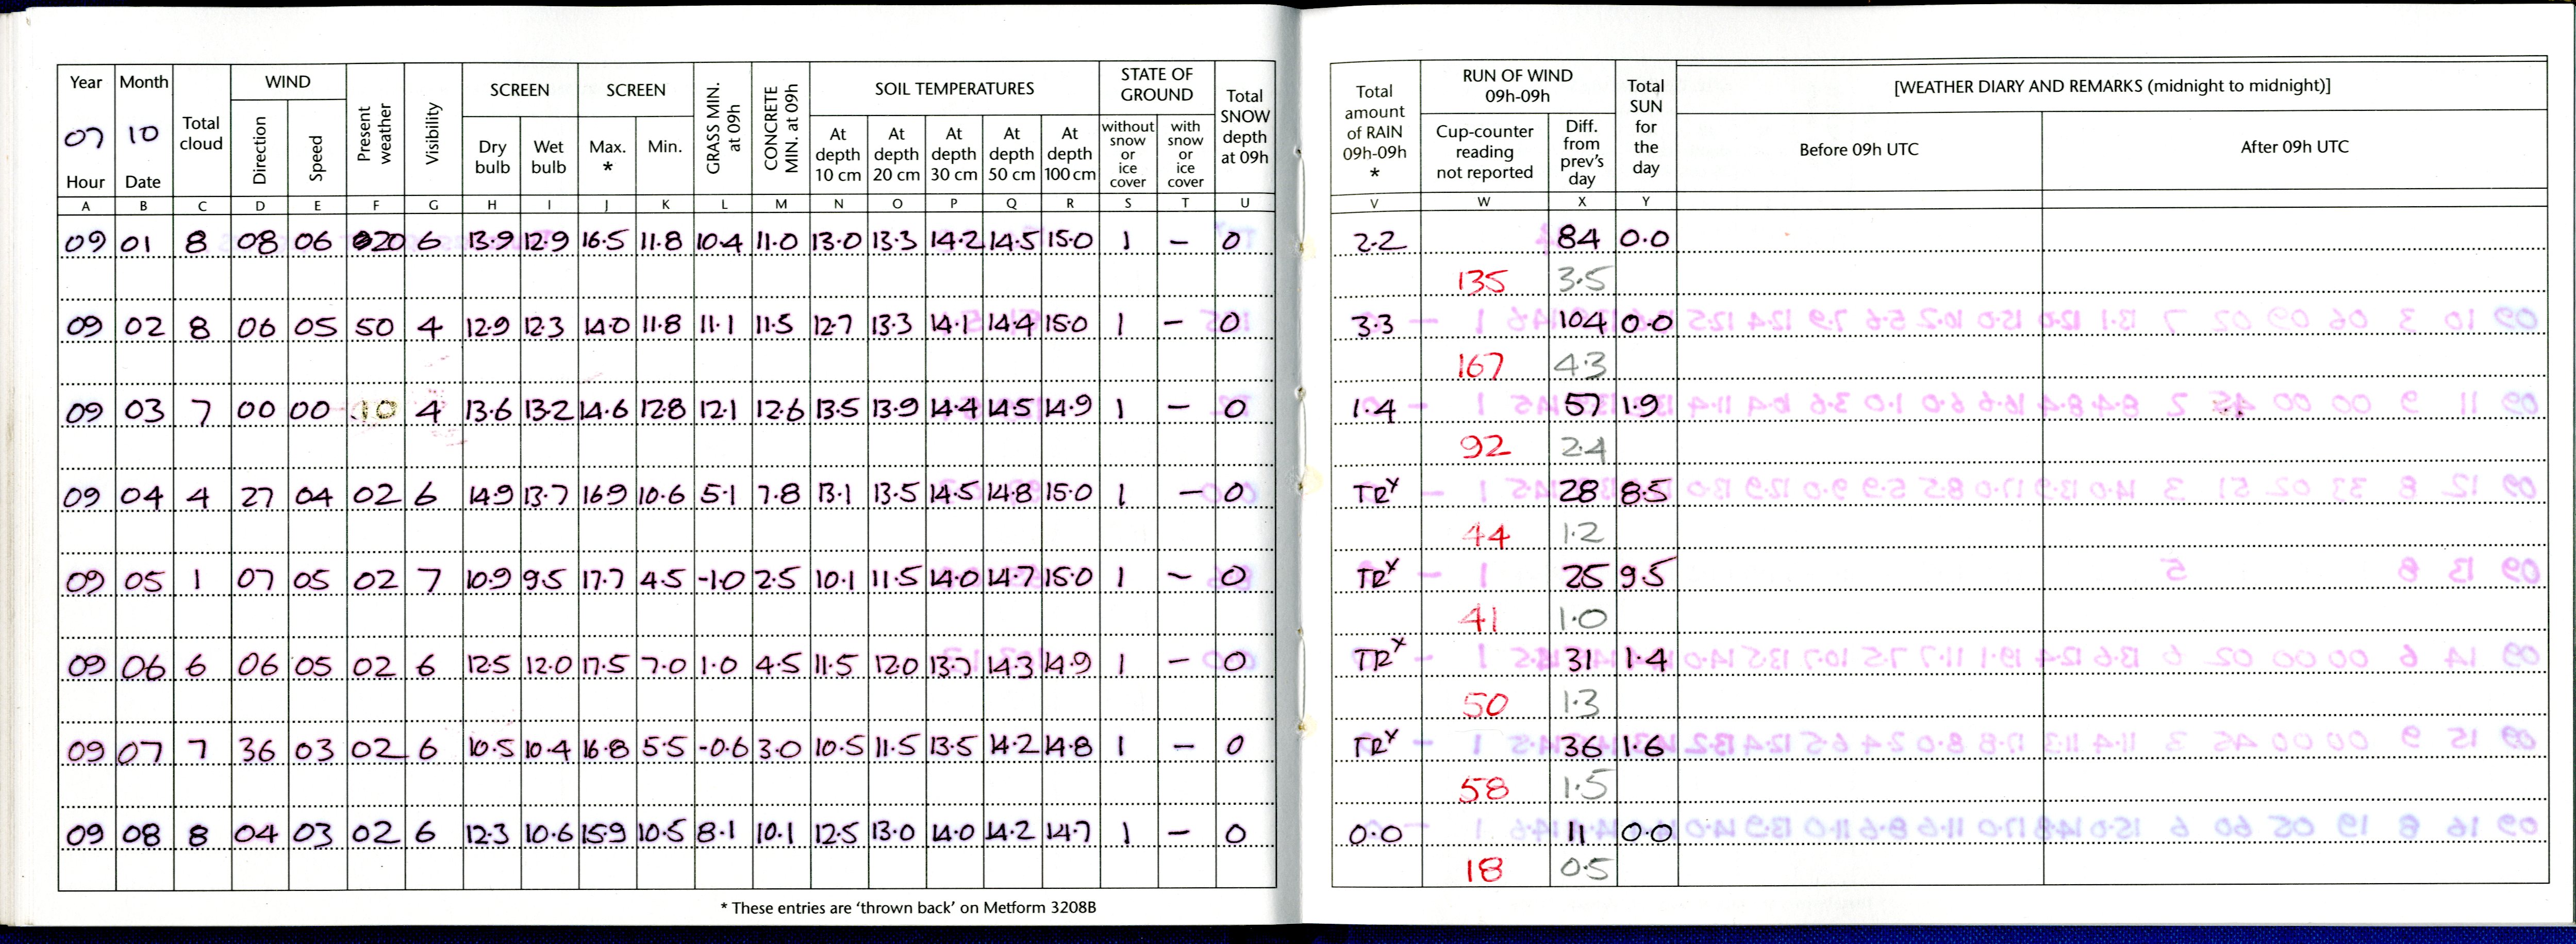 Year Month Total cloud WIND Present weather Visibility SCREEN SCREEN GRASS MIN. at 09h CONCRETE MIN. at 09h SOIL TEMPERATURES STATE OF GROUND Total SNOW depth at 09h
07 10 Direction Speed Dry bulb Wet bulb Max. * Min. At depth 10 cm At depth 20 cm At depth 30 cm At depth 50 cm At depth 100 cm without snow or ice cover with snow or ice cover
Hour Date
A B C D E F G H I J K L M N O P Q R S T U
09 01 8 08 06 020 6 13.9 12.9 16.5 11.8 10.4 11.0 13.0 13.3 14.2 14.5 15.0 1 – 0
09 02 8 06 05 50 4 12.9 12.3 14.0 11.8 11.1 11.5 12.7 13.3 14.1 14.4 15.0 1 – 0
09 03 7 00 00 10 4 13.6 13.2 14.6 12.8 12.1 12.6 13.5 13.9 14.4 14.5 14.9 1 – 0
09 04 4 27 04 02 6 14.9 13.7 16.9 10.6 5.1 7.8 13.1 13.5 14.5 14.8 15.0 1 – 0
09 05 1 07 05 02 7 10.9 9.5 17.7 4.5 -1.0 2.5 10.1 11.5 14.0 14.7 15.0 1 – 0
09 06 6 06 05 02 6 12.5 12.0 17.5 7.0 1.0 4.5 11.5 12.0 13.7 14.3 14.9 1 – 0
09 07 7 36 03 02 6 10.5 10.4 16.8 5.5 -0.6 3.0 10.5 11.5 13.5 14.2 14.8 1 – 0
09 08 8 04 03 02 6 12.3 10.6 15.9 10.5 8.1 10.1 12.5 13.0 14.0 14.2 14.7 1 – 0
* These entries are ‘thrown back’ on Metform 3208B
Total amount of RAIN 09h-09h * RUN OF WIND 09h-09h Total SUN for the day [WEATHER DIARY AND REMARKS (midnight to midnight)]
Cup-counter reading not reported Diff. from prev's day Before 09h UTC After 09h UTC
V W X Y
2.2 84 0.0
135 3.5
3.3 104 0.0
167 4.3
1.4 57 1.9
92 2.4
TRx 28 8.5
44 1.2
TRx 25 9.5
41 1.0
TRx 31 1.4
50 1.3
TRx 36 1.6
58 1.5
0.0 11 0.0
18 0.5